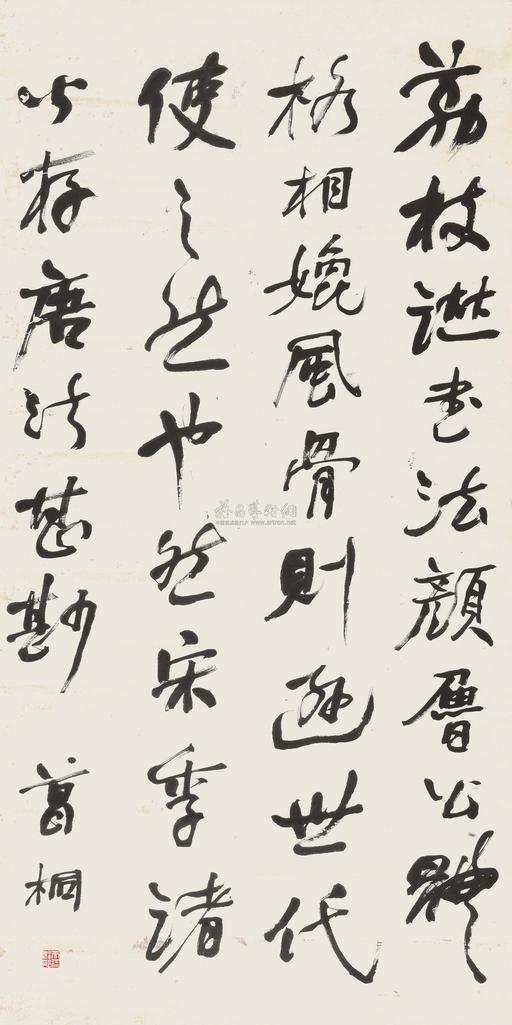 荔枝譜書法顏魯公體
格相媲風骨則遜世代
使之然也然宋季諸
公存唐法甚尠
葛桐
雅昌藝術網
www.artron.net